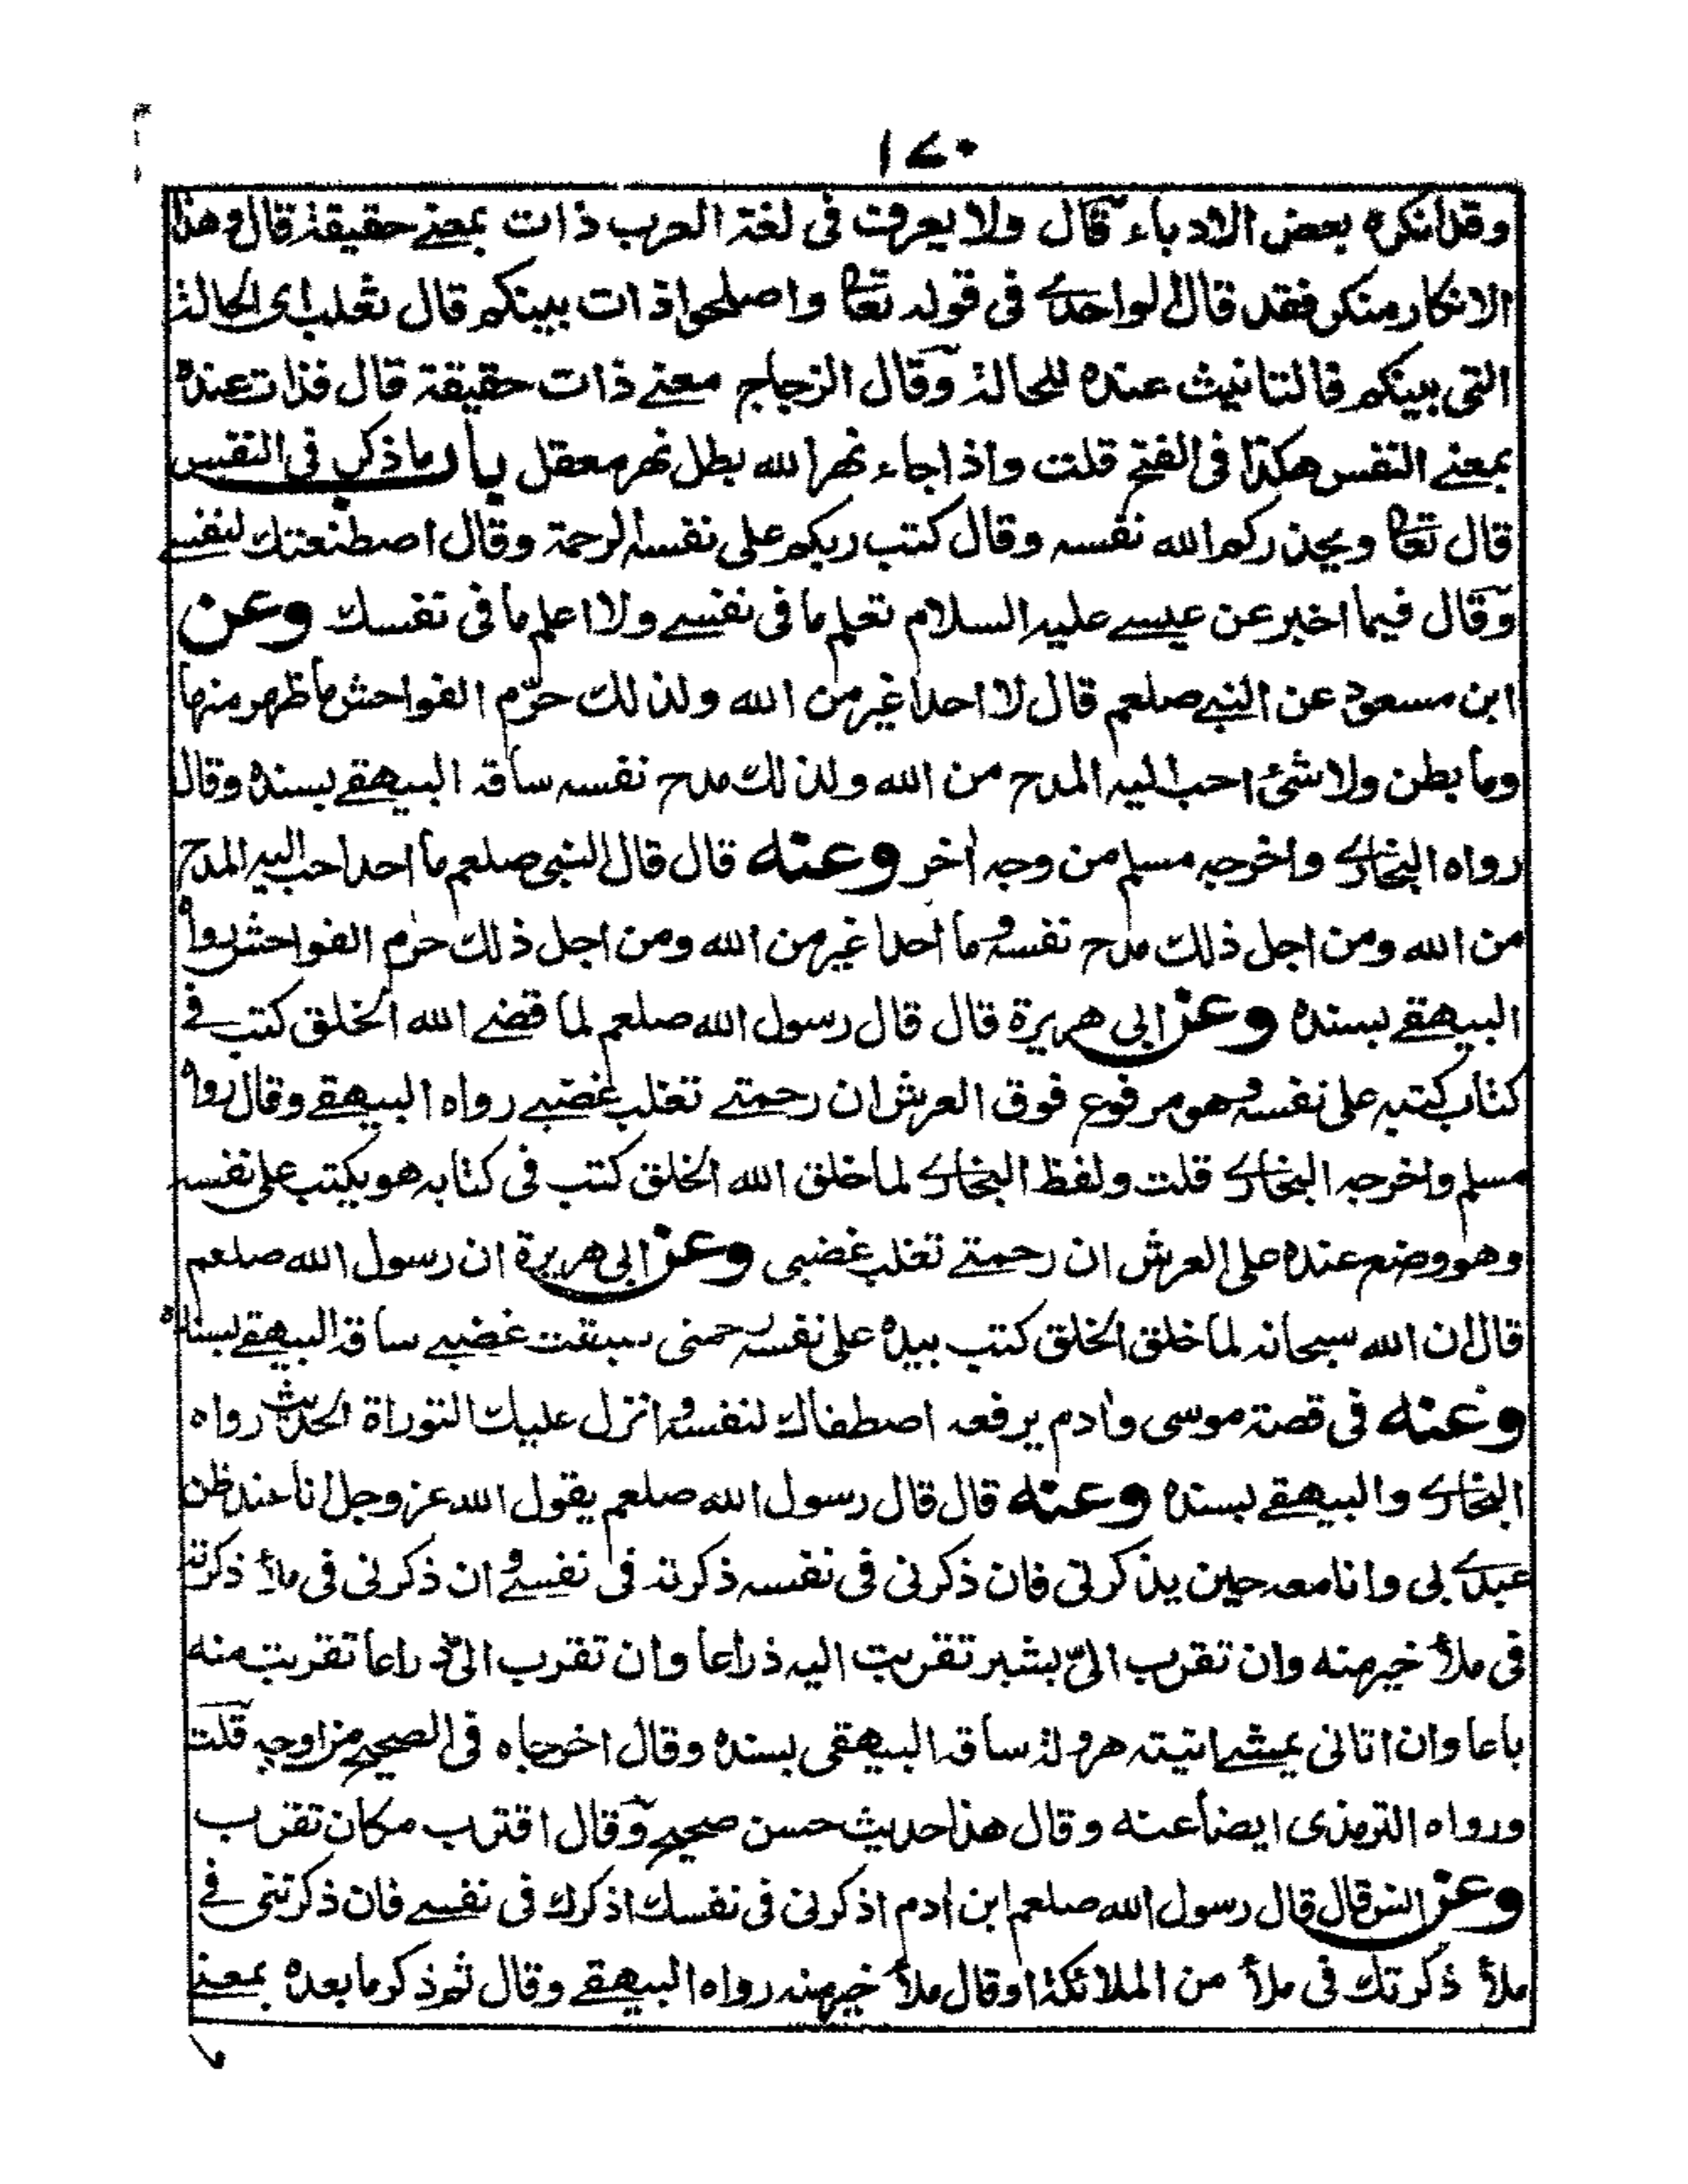 ١٧٠
وقد انكره بعض الادباء قال ولا يعرف فى لغة العرب ذات بمعنے حقيقة قال وهذا
الانكار منكر فقد قال الواحدے فى قوله تعا واصلحوا ذات بينكم قال ثعلب اى الحالة
التى بينكم فالتانيث عنده للحالة وقال الزجاج معنے ذات حقيقة قال فذات عنده
بمعنے النفس هكذا فى الفتح قلت واذا جاء نهر الله بطل نهر معقل باب ما ذكر فى النفس
قال تعا ويحذركم الله نفسه وقال كتب ربكم على نفسه الرحمة وقال اصطنعتك لنفسے
وقال فيما اخبر عن عيسے عليه السلام تعلم ما فى نفسے ولا اعلم ما فى نفسك وعن
ابن مسعود عن النبے صلعم قال لا احد اغير من الله ولذلك حرّم الفواحش ما ظهر منها
وما بطن ولا شئ احب اليه المدح من الله ولذلك مدح نفسه ساقه البيهقے بسنده وقال
رواه البخارے واخرجه مسلم من وجه اٰخر وعنه قال قال النبى صلعم ما احد احب اليه المدح
من الله ومن اجل ذلك مدح نفسه وما احد اغير من الله ومن اجل ذلك حرم الفواحش رواه
البيهقے بسنده وعن ابى هريرة قال قال رسول الله صلعم لما قضے الله الخلق كتب فے
كتاب كتبه على نفسه وهو مرفوع فوق العرش ان رحمتے تغلب غضبے رواه البيهقے وقال رواه
مسلم واخرجه البخارے قلت ولفظ البخارے لما خلق الله الخلق كتب فى كتابه هو يكتب على نفسه
وهو وضع عنده على العرش ان رحمتے تغلب غضبى وعن ابى هريرة ان رسول الله صلعم
قال ان الله سبحانه لما خلق الخلق كتب بيده على نفسه رحمتى سبقت غضبے ساقه البيهقے بسنده
وعنه فى قصة موسى واٰدم يرفعه اصطفاك لنفسه وانزل عليك التوراة الحديث رواه
البخارے والبيهقے بسنده وعنه قال قال رسول الله صلعم يقول الله عز وجل انا عند ظن
عبدے بى وانا معه حين يذكرنى فان ذكرنى فى نفسه ذكرته فى نفسے وان ذكرنى فى ملأ ذكرته
فى ملأ خير منه وان تقرب الىّ بشبر تقربت اليه ذراعا وان تقرب الىّ ذراعا تقربت منه
باعا وان اتانى يمشے اتيته هرولة ساقه البيهقى بسنده وقال اخرجاه فى الصحيح من اوجه قلت
ورواه الترمذى ايضا عنه وقال هذا حديث حسن صحيح وقال اقترب مكان تقرب
وعن انس قال قال رسول الله صلعم ابن اٰدم اذكرنى فى نفسك اذكرك فى نفسے فان ذكرتنى فے
ملأ ذكرتك فى ملأ من الملائكة او قال ملأ خير منه رواه البيهقے وقال ثم ذكر ما بعده بمعنے